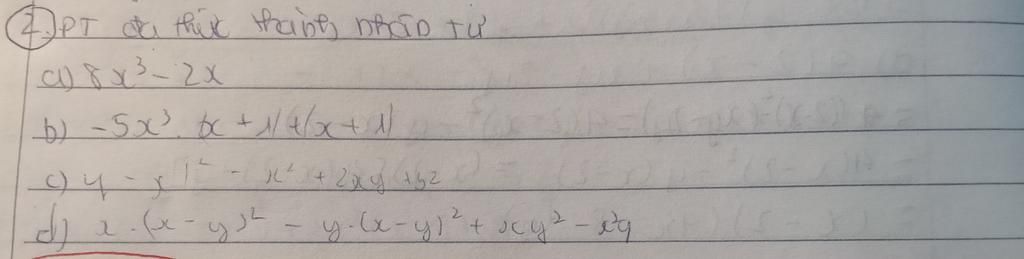 2. PT đa thức thành nhân tử
a) 8x³ - 2x
b) -5x³. (x + 1) + (x + 1)
c) y - x)² - x² + 2xy
d) x.(x - y)² - y.(x - y)² + xy² - x²y